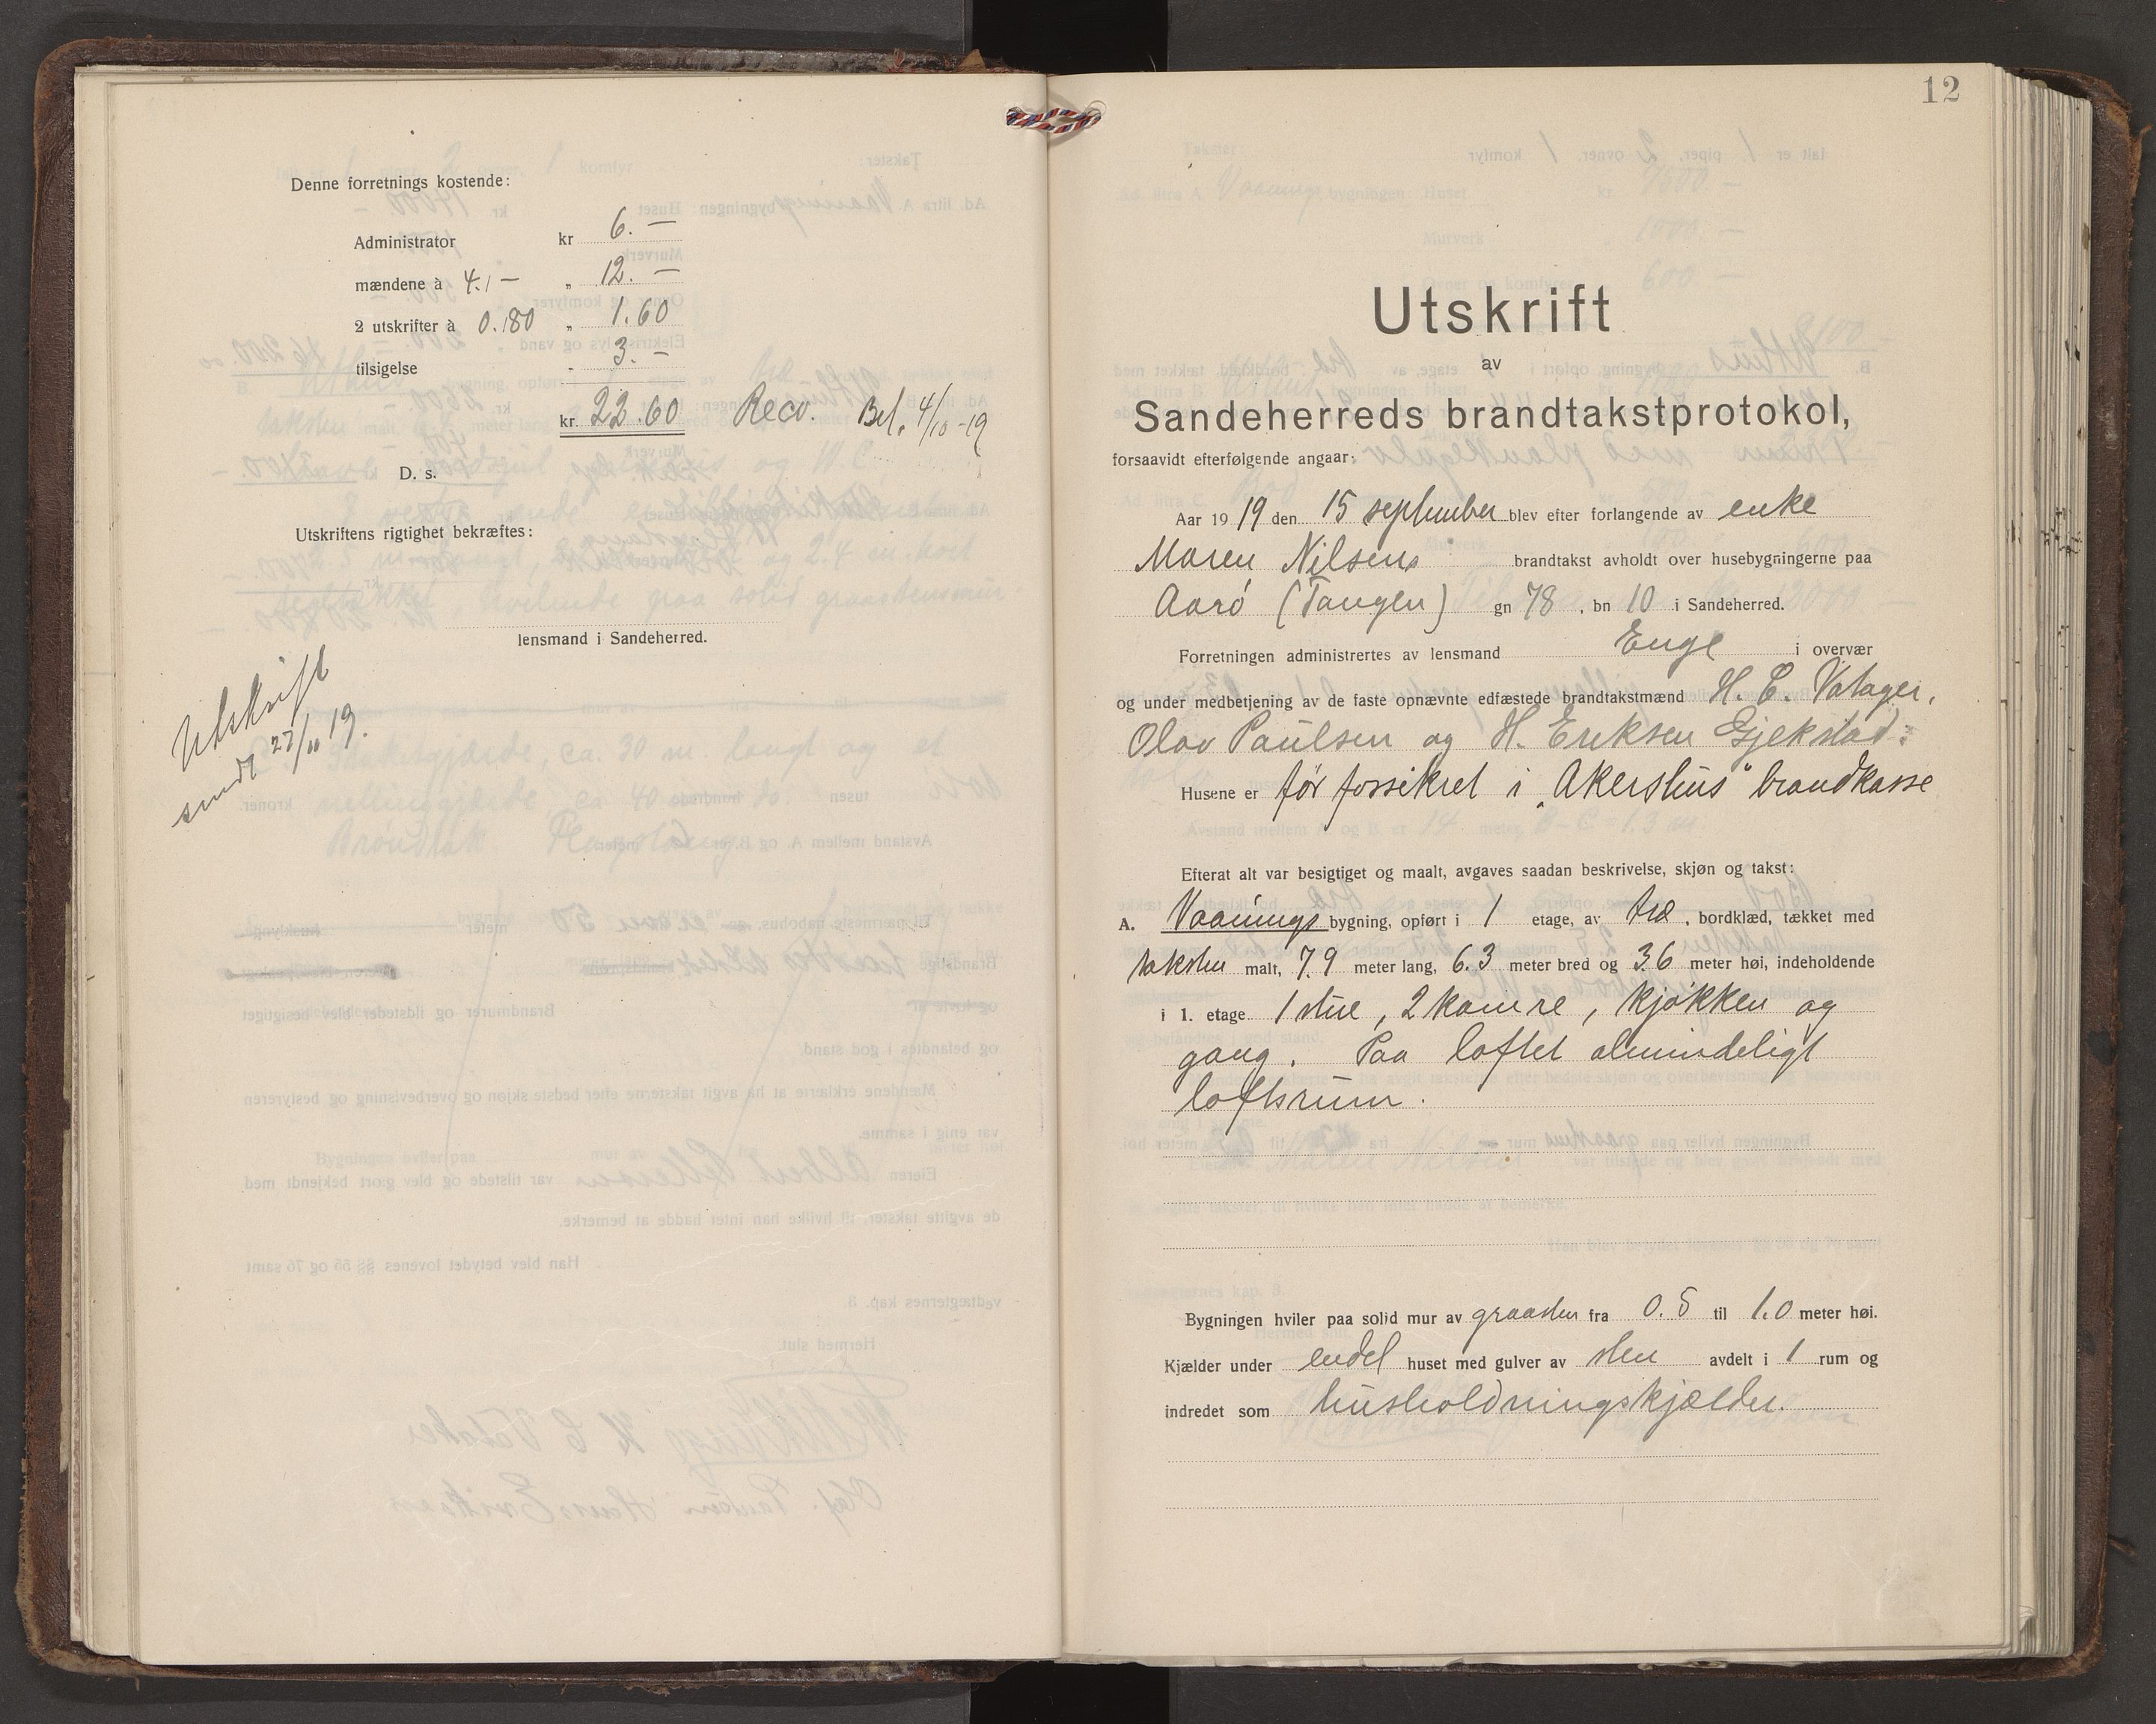 Denne forretnings kostende:
Administrator kr 6. —
mændene à 4.1— „ 12. —
2 utskrifter à 0.180 „ 1.60
tilsigelse „ 3. —
kr. 22.60 Recv. Bet. 4/10-19
D. s.
Utskriftens rigtighet bekræftes:
lensmand i Sandeherred.
Utskrift
sendt 27/11 19.
12
Utskrift
av
Sandeherreds brandtakstprotokol,
forsaavidt efterfølgende angaar:
Aar 1919 den 15 september blev efter forlangende av enke
Maren Nilsens brandtakst avholdt over husebygningerne paa
Aarø (Tangen) gn 78, bn 10 i Sandeherred.
Forretningen administrertes av lensmand Enge i overvær
og under medbetjening av de faste opnævnte edfæstede brandtakstmænd H. C. Vatager,
Olav Paulsen og H. Eriksen Gjekstad.
Husene er før forsikret i „Akershus" brandkasse
Efterat alt var besigtiget og maalt, avgaves saadan beskrivelse, skjøn og takst:
A. Vaanings bygning, opført i 1 etage, av træ, bordklæd, tækket med
taksten malt, 7.9 meter lang, 6.3 meter bred og 3.6 meter høi, indeholdende
i 1. etage 1 stue, 2 kamre, kjøkken og
gang. Paa loftet almindeligt
loftsrum.
Bygningen hviler paa solid mur av graasten fra 0.5 til 1.0 meter høi.
Kjælder under endel huset med gulver av sten avdelt i 1 rum og
indredet som husholdningskjælder.